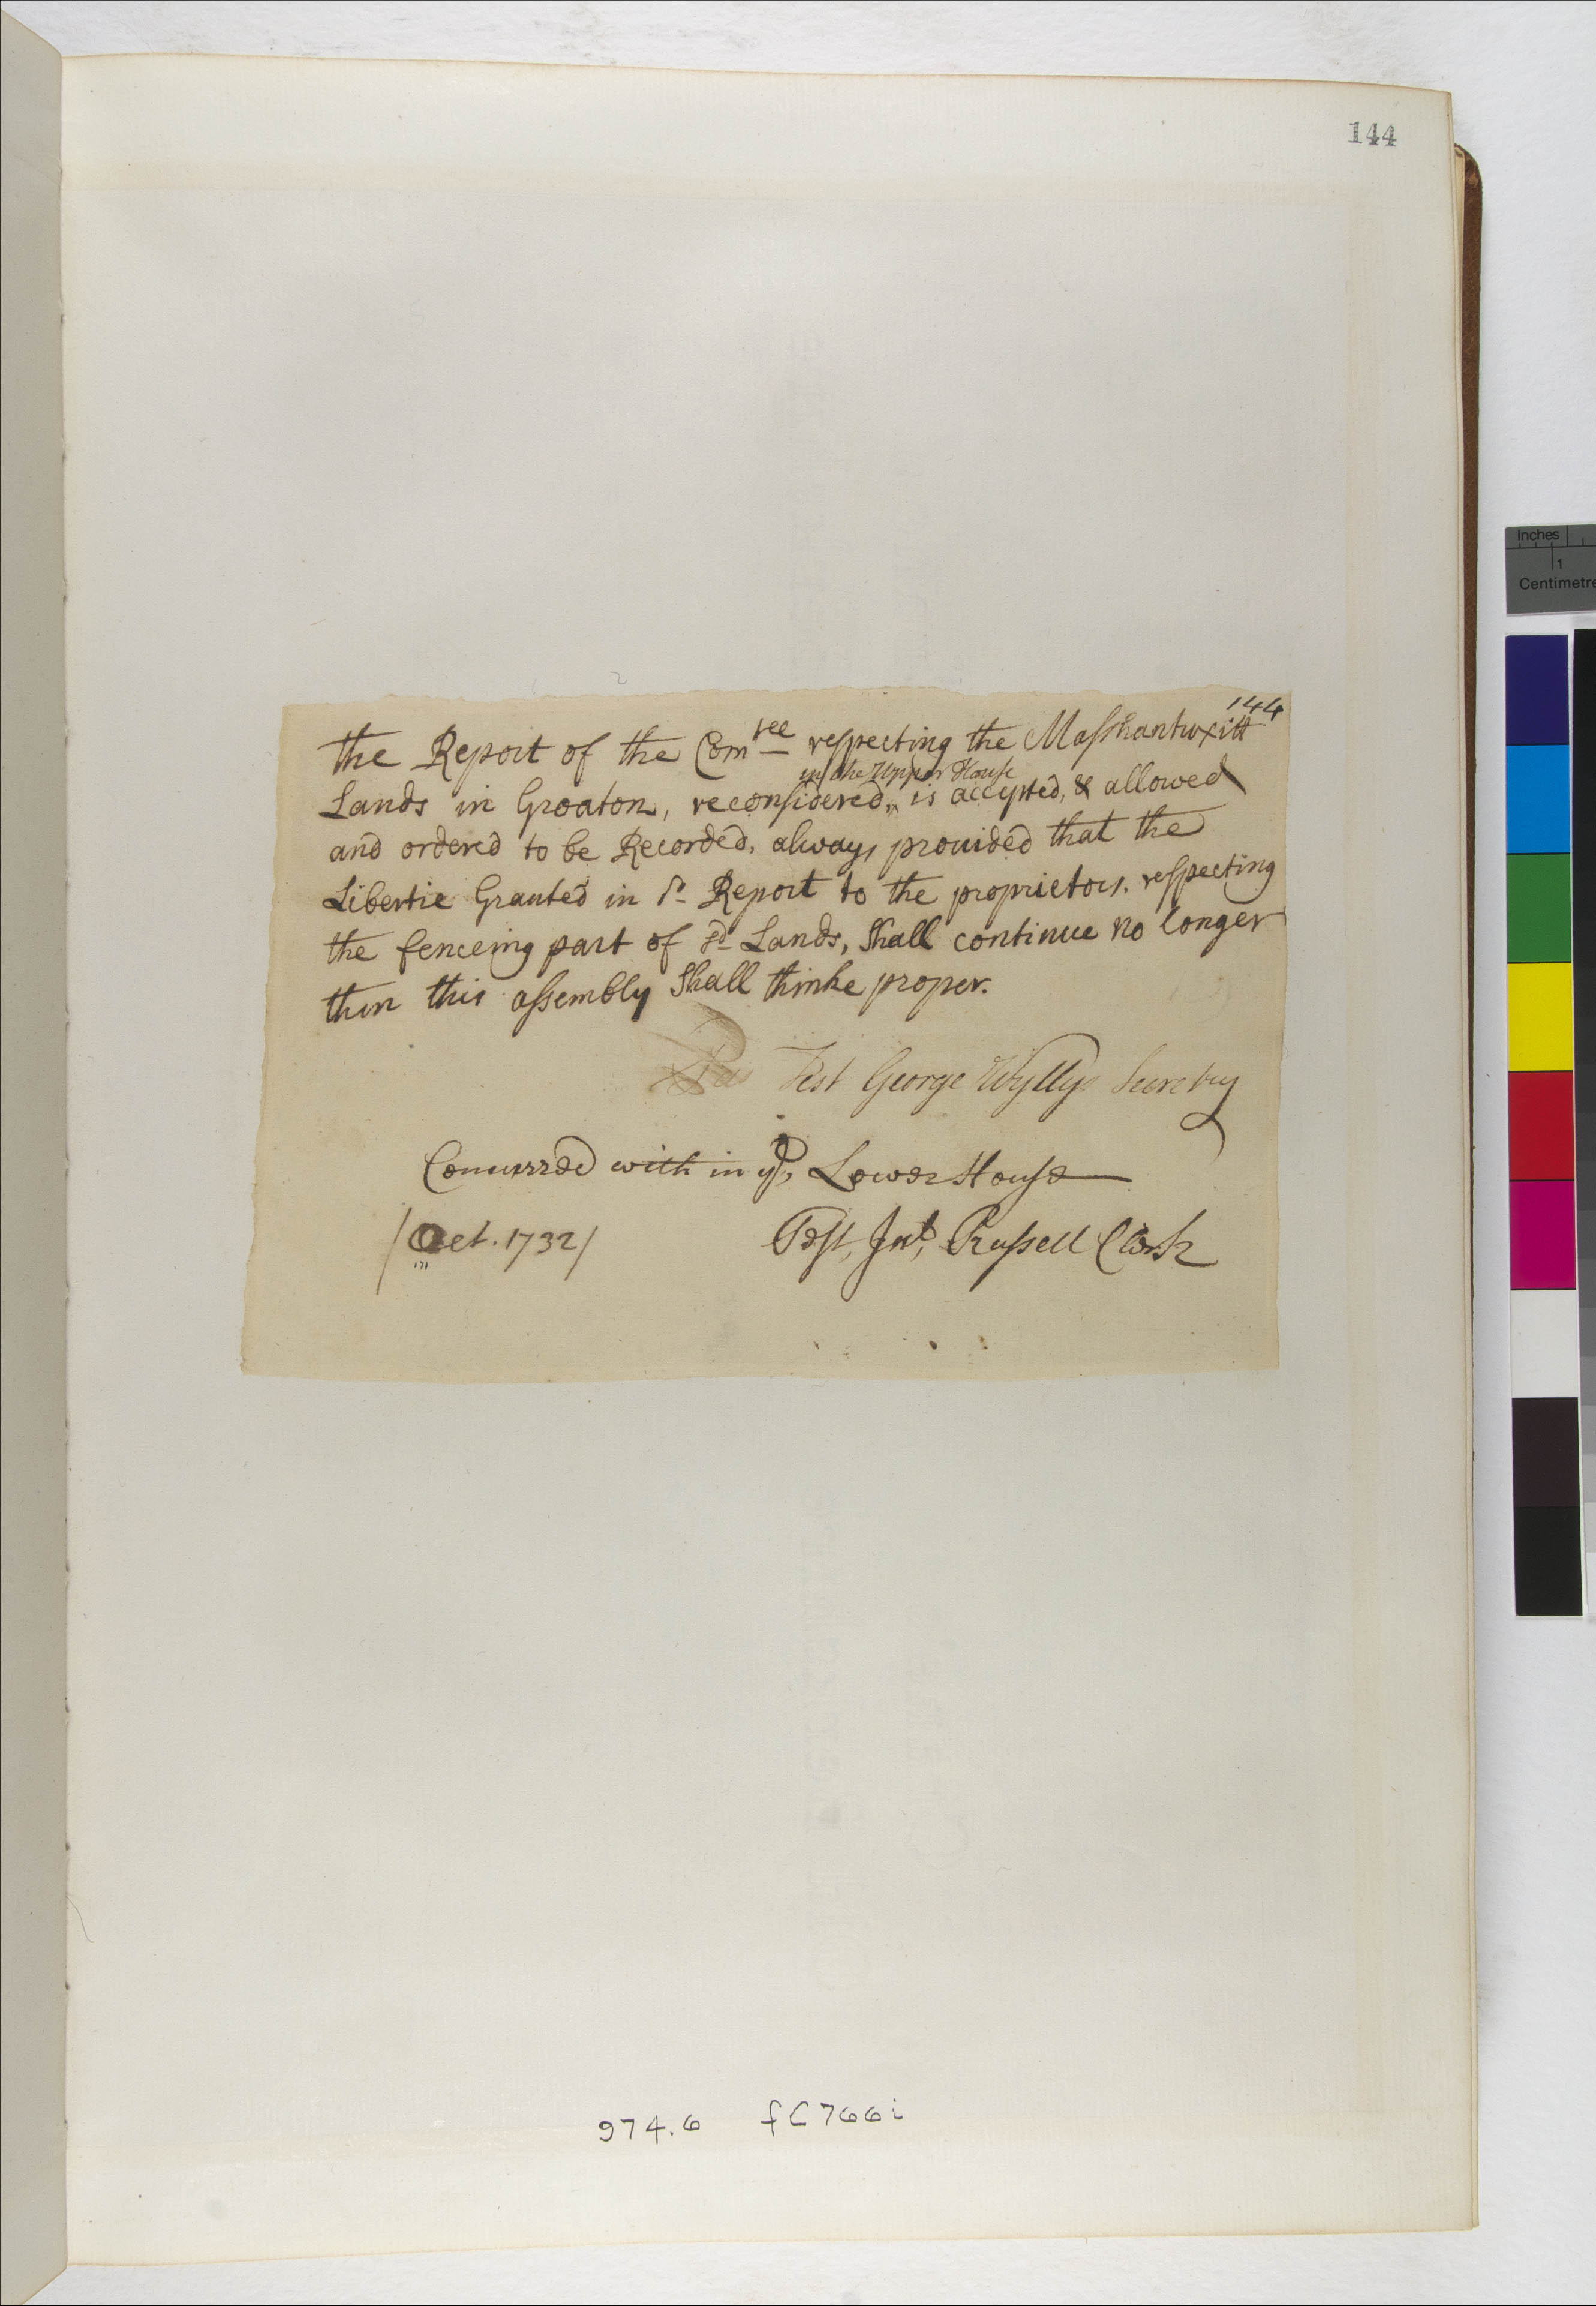 144
144
the Report of the Com^tee respecting the Masshantuxitt
in the Upper House
Lands in Groaton, reconsidered, ^ is accepted, & allowed
and ordered to be Recorded, always prouided that the
Libertie Granted in sd Report to the proprietors, respecting
the fenceing part of sd Lands, Shall continue no longer
then this assembly Shall thinke proper.
Test George Wyllys Secretry
Concurred with in ye, Lower House
/Oct. 1732/ Test, Jno, Russell Clerk
974.6 fC766i
Inches
1
Centimetre